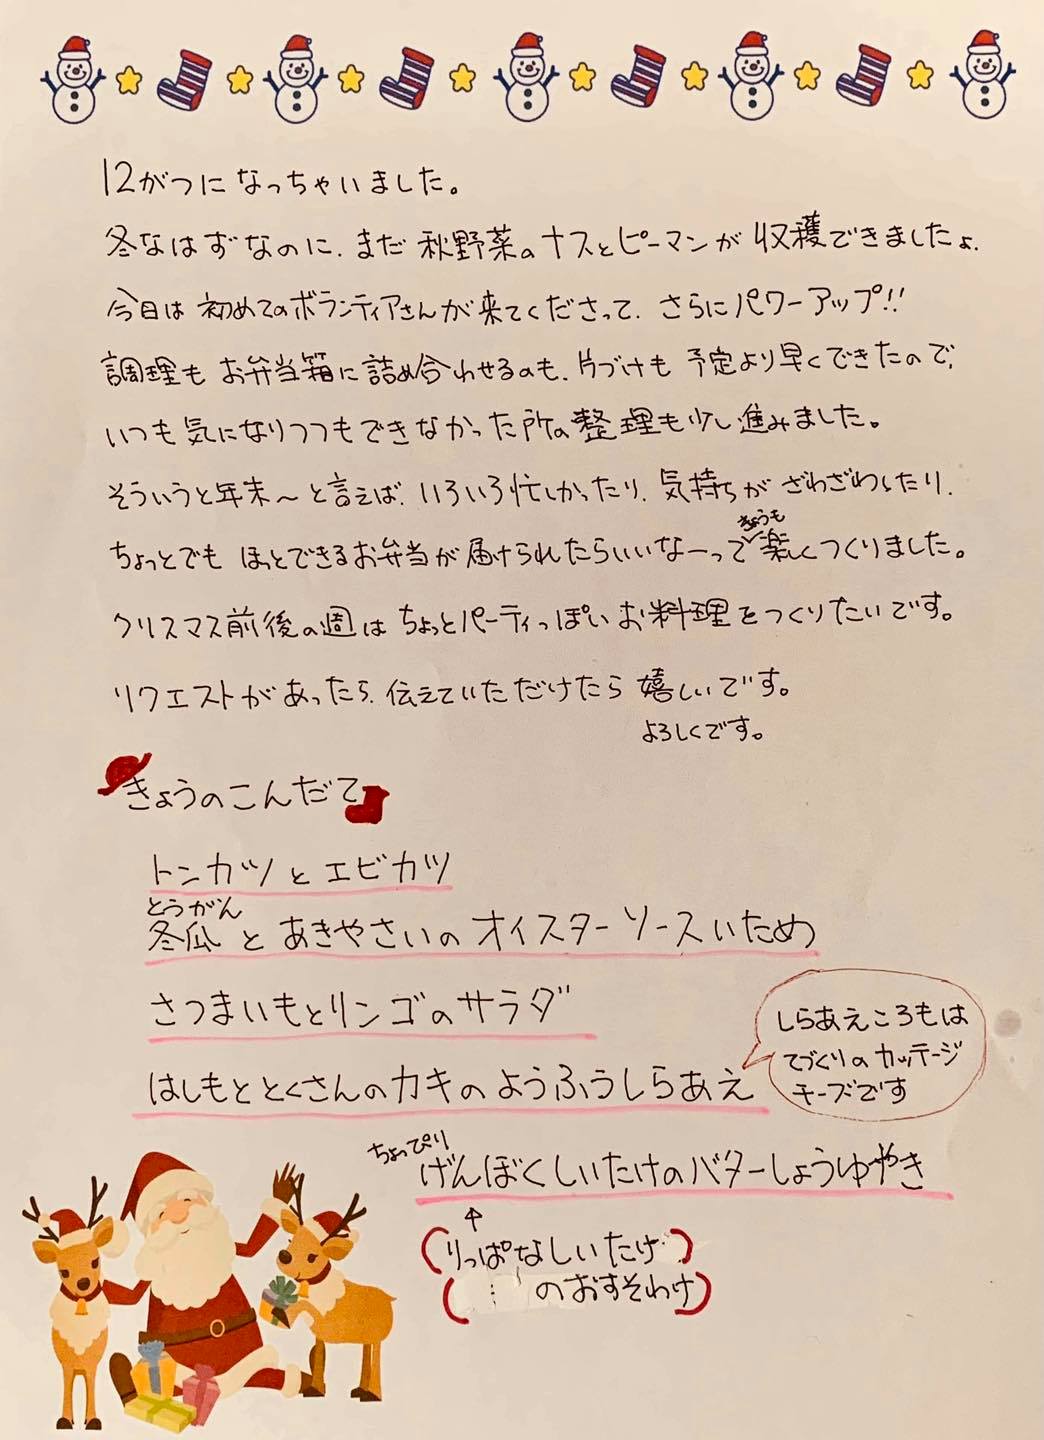 12がつになっちゃいました。
冬なはずなのに、まだ秋野菜のナスとピーマンが収穫できましたょ.
今日は初めてのボランティアさんが来てくださって、さらにパワーアップ!!
調理もお弁当箱に詰め合わせるのも、片づけも予定より早くできたので、
いつも気になりつつもできなかった所の整理も少し進みました。
そういうと年末〜と言えば、いろいろ忙しかったり、気持ちがざわざわしたり、
きょうも
ちょっとでもほっとできるお弁当が届けられたらいいなーって楽しくつくりました。
クリスマス前後の週はちょっとパーティっぽいお料理をつくりたいです。
リクエストがあったら、伝えていただけたら嬉しいです。
よろしくです。
きょうのこんだて
トンカツとエビカツ
とうがん
冬瓜とあきやさいのオイスターソースいため
さつまいもとリンゴのサラダ
しらあえころもは
てづくりのカッテージ
チーズです
はしもととくさんのカキのようふうしらあえ
ちょっぴり
げんぼくしいたけのバターしょうゆやき
↑
(りっぱなしいたけ)
(のおすそわけ)